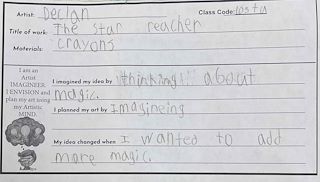 Artist: Declan Class Code: 105 +1A
Title of work: The star reacher
Materials: crayons
I am an
Artist
IMAGINEER.
I ENVISION and
plan my art using
my Artistic
MIND.
I imagined my idea by thinking about
magic.
I planned my art by Imagineing
My idea changed when I wanted to add
more magic.